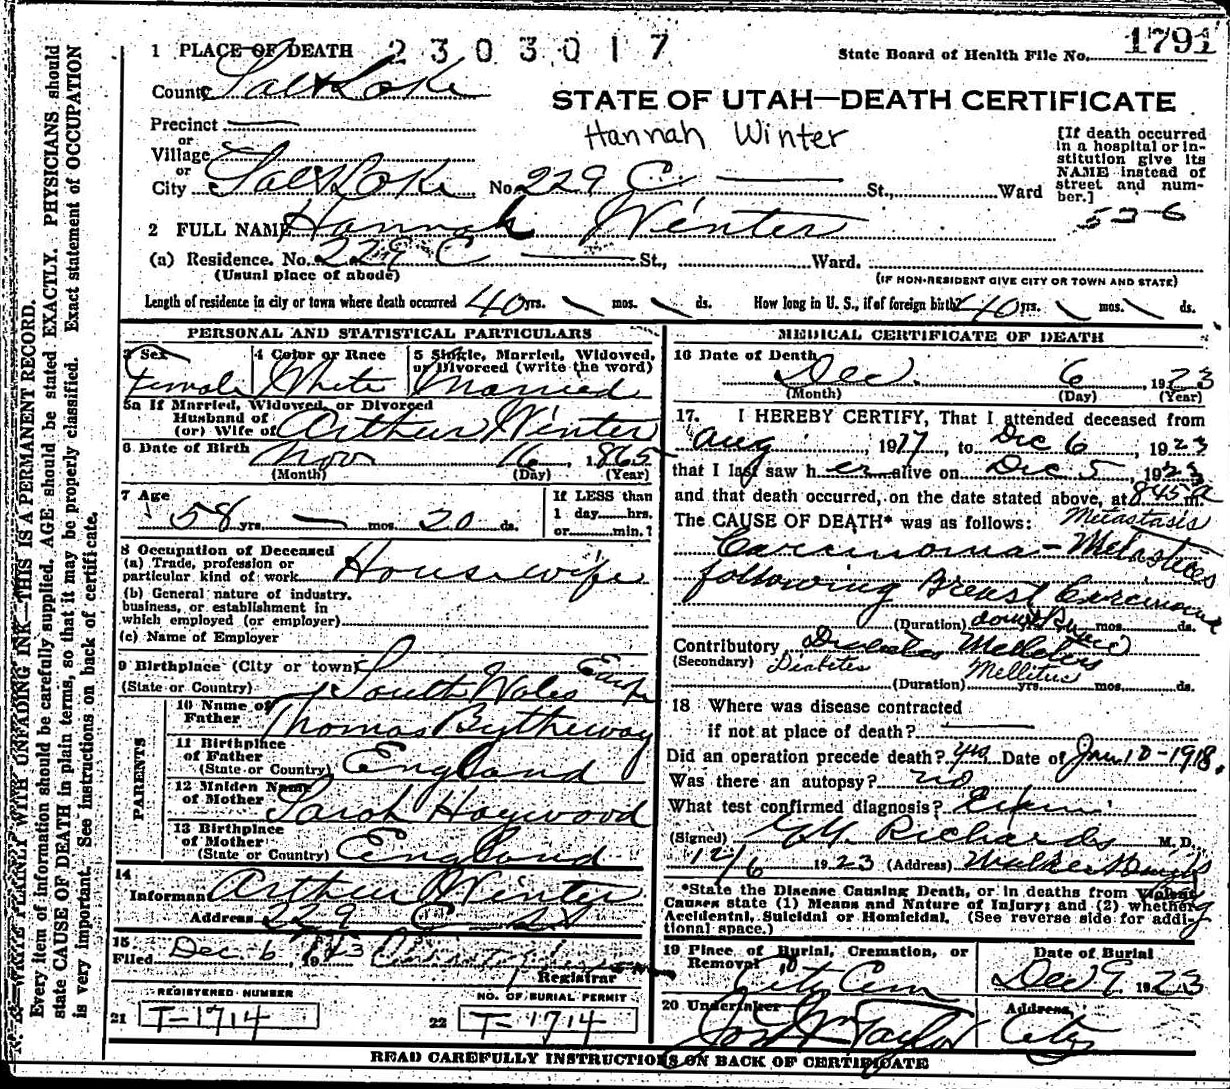 1 PLACE OF DEATH 2303017
State Board of Health File No. 1791
County Salt Lake
STATE OF UTAH—DEATH CERTIFICATE
Hannah Winter
Precinct
or
Village
or
City Salt Lake No. 229 C St., Ward
[If death occurred
in a hospital or in-
stitution give its
NAME instead of
street and num-
ber.]
526
2 FULL NAME Hannah Winter
(a) Residence. No. 229 C St., Ward.
(Usual place of abode) (IF NON-RESIDENT GIVE CITY OR TOWN AND STATE)
Length of residence in city or town where death occurred 40 yrs. \ mos. \ ds. How long in U. S., if of foreign birth? 40 yrs. \ mos. \ ds.
PERSONAL AND STATISTICAL PARTICULARS
3 Sex 4 Color or Race 5 Single, Married, Widowed,
or Divorced (write the word)
Female White Married
5a If Married, Widowed, or Divorced
Husband of
(or) Wife of Arthur Winter
6 Date of Birth Nov 16, 1865
(Month) (Day) (Year)
7 Age If LESS than
58 yrs. — mos. 20 ds. 1 day......hrs.
or......min.?
8 Occupation of Deceased
(a) Trade, profession or
particular kind of work Housewife
(b) General nature of industry,
business, or establishment in
which employed (or employer)
(c) Name of Employer
9 Birthplace (City or town)
(State or Country) South Wales
PARENTS
10 Name of
Father Thomas Bytheway
11 Birthplace
of Father
(State or Country) England
12 Maiden Name
of Mother Sarah Haywood
13 Birthplace
of Mother
(State or Country) England
14
Informant Arthur Winter
Address 229 C St
15
Filed Dec 6, 1923
Registrar
REGISTERED NUMBER NO. OF BURIAL PERMIT
21 T-1714 22 T-1714
MEDICAL CERTIFICATE OF DEATH
16 Date of Death
Dec. 6, 1923
(Month) (Day) (Year)
17. I HEREBY CERTIFY, That I attended deceased from
Aug, 1917, to Dec 6, 1923
that I last saw her alive on Dec 5, 1923
and that death occurred, on the date stated above, at 845 a m.
The CAUSE OF DEATH* was as follows: Metastasis
Carcinoma - Metastices
following Breast Carcinoma
(Duration) yrs. mos. ds.
Contributory Diabetes Mellitus
(Secondary) Diabetes Mellitus
(Duration) yrs. mos. ds.
18 Where was disease contracted
if not at place of death?
Did an operation precede death? yes Date of Jan 10-1918.
Was there an autopsy? no
What test confirmed diagnosis?
(Signed) G.G. Richards M. D.
12/6 1923 (Address) Walker
*State the Disease Causing Death, or in deaths from Violent
Causes state (1) Means and Nature of Injury; and (2) whether
Accidental, Suicidal or Homicidal. (See reverse side for addi-
tional space.)
19 Place of Burial, Cremation, or
Removal City Cem
Date of Burial
Dec 9 1923
20 Undertaker Address
Jos Wm Taylor City
READ CAREFULLY INSTRUCTIONS ON BACK OF CERTIFICATE
WRITE PLAINLY WITH UNFADING INK—THIS IS A PERMANENT RECORD.
Every item of information should be carefully supplied. AGE should be stated EXACTLY. PHYSICIANS should
state CAUSE OF DEATH in plain terms, so that it may be properly classified. Exact statement of OCCUPATION
is very important. See instructions on back of certificate.